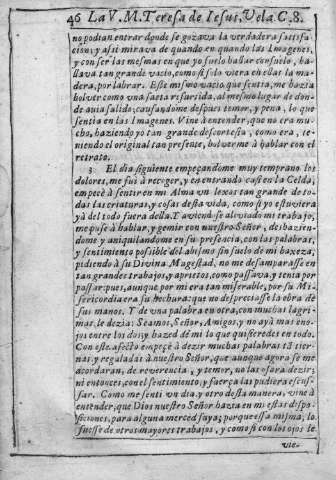 46 La V. M. Teresa de Iesus, Vela C. 8.
no podian entrar donde se gozava la verdadera satisfa-
cion; y assi mirava de quando en quando las Imagenes,
y con ser las mesmas en que yo suelo hallar consuelo, ha-
llava tan grande vacio, como si solo viera en ellas la ma-
dera, por labrar. Este mismo vacio que sentia, me hazia
bolver como una saeta resurtida, al mesmo lugar de don-
de avia salido; causandome despues temor, y pena, lo que
sentia en las Imagenes. Vine à entender, que no era mu-
cho, haziendo yo tan grande descortesia, como era, te-
niendo el original tan presente, bolverme à hablar con el
retrato.
3. El dia siguiente empeçandome muy temprano los
dolores, me fui à recoger, y en entrando casi en la Celda,
empecè à sentir en mi Alma un lexos tan grande de to-
das las criaturas, y cosas desta vida, como si yo estuviera
yà del todo fuera della. Y aviendose aliviado mi trabajo,
me puse à hablar, y gemir con nuestro Señor, deshazien-
dome y aniquilandome en su presencia, con las palabras,
y sentimiento possible del abismo sin suelo de mi baxeza;
pidiendo à su Divina Magestad, no me desamparasse en
tan grandes trabajos, y aprietos, como passava, y tenia por
passar: pues, aunque por mi era tan miserable, por su Mi-
sericordia era su hechura: que no despreciasse la obra de
sus manos. Y de una palabra en otra, con muchas lagri-
mas, le dezia: Seamos, Señor, Amigos, y no aya mas eno-
jos entre los dos; y hazed de mi lo que quisieredes en todo.
Con este afecto empecè à dezir muchas palabras tã tier-
nas, y regaladas à nuestro Señor, que aunque agora se me
acordaran, de reverencia, y temor, no las osara dezir;
ni entonces, con el sentimiento, y fuerça las pudiera escu-
sar. Como me senti un dia, y otro desta manera, vine à
entender, que Dios nuestro Señor hazia en mi estas dispo-
siciones, para alguna merced suya; porque essa misma, lo
fuesse de otros mayores trabajos, y como si con los ojos le
vie-